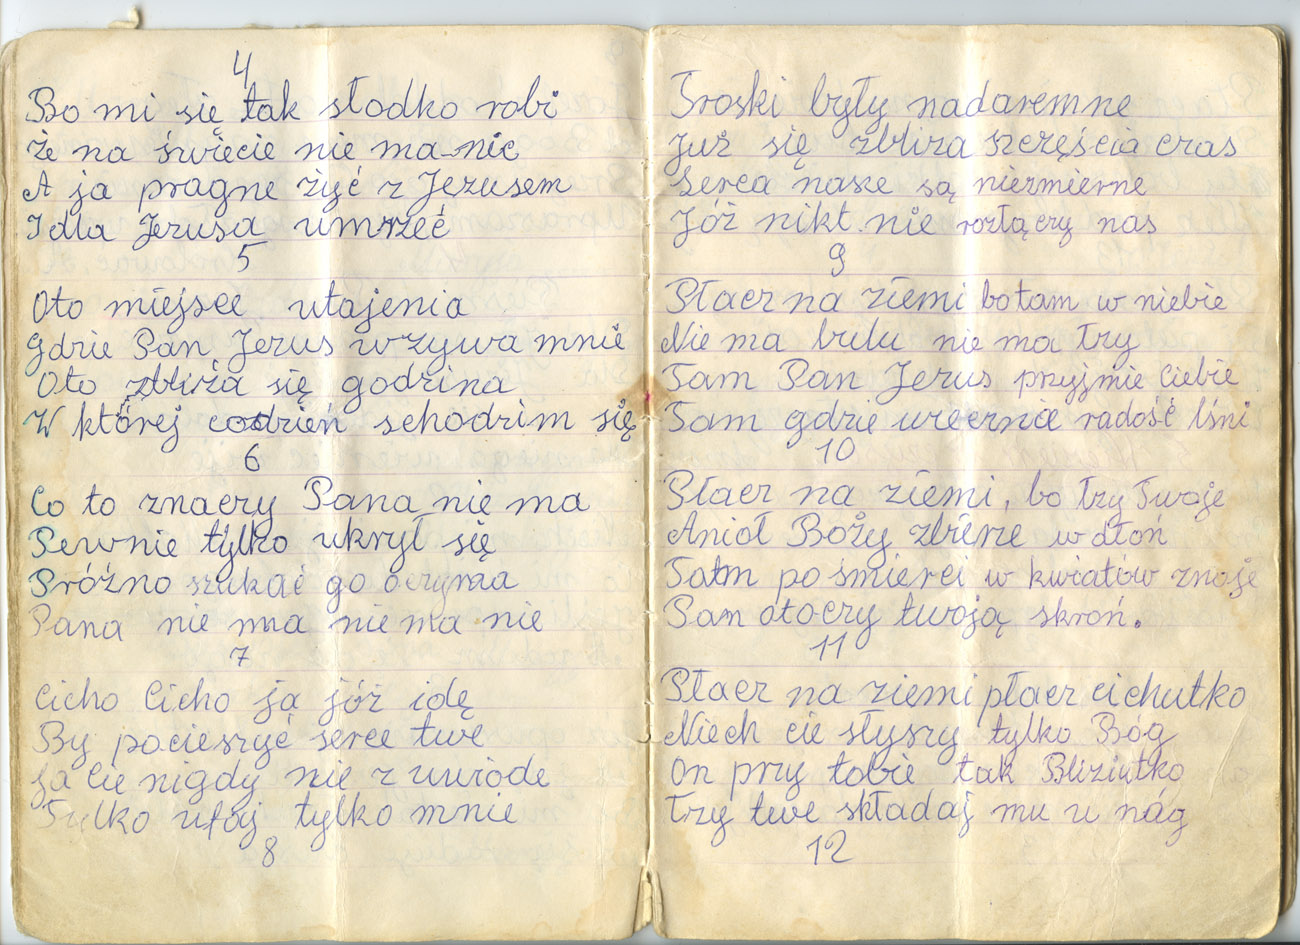 4
Bo mi się tak słodko robi
że na świecie nie ma nic
A ja pragne żyć z Jezusem
I dla Jezusa umrzeć
5
Oto miejsce utajenia
Gdzie Pan Jezus wzywa mnie
Oto zbliża się godzina
W której codzień schodzim się
6
Co to znaczy Pana nie ma
Pewnie tylko ukrył się
Próżno szukać go oczyma
Pana nie ma nie ma nie
7
Cicho Cicho ja jóż idę
By pocieszyć serce twe
Ja Cie nigdy nie zwiode
Tylko ufaj tylko mnie
8
Troski były nadaremne
Już się zbliża szczęścia czas
Serca nasze są niezmierne
Jóż nikt nie rozłączy nas
9
Płacz na ziemi bo tam w niebie
Nie ma bulu nie ma łzy
Tam Pan Jezus przyjmie Ciebie
Tam gdzie wieczna radość lśni
10
Płacz na ziemi, bo łzy Twoje
Anioł Boży zbierze w dłoń
Tam po śmierci w kwiatów znoje
Pan otoczy twoją skroń.
11
Płacz na ziemi płacz cichutko
Niech cie słyszy tylko Bóg
On przy tobie tak Bliziutko
Łzy twe składaj mu u nóg
12